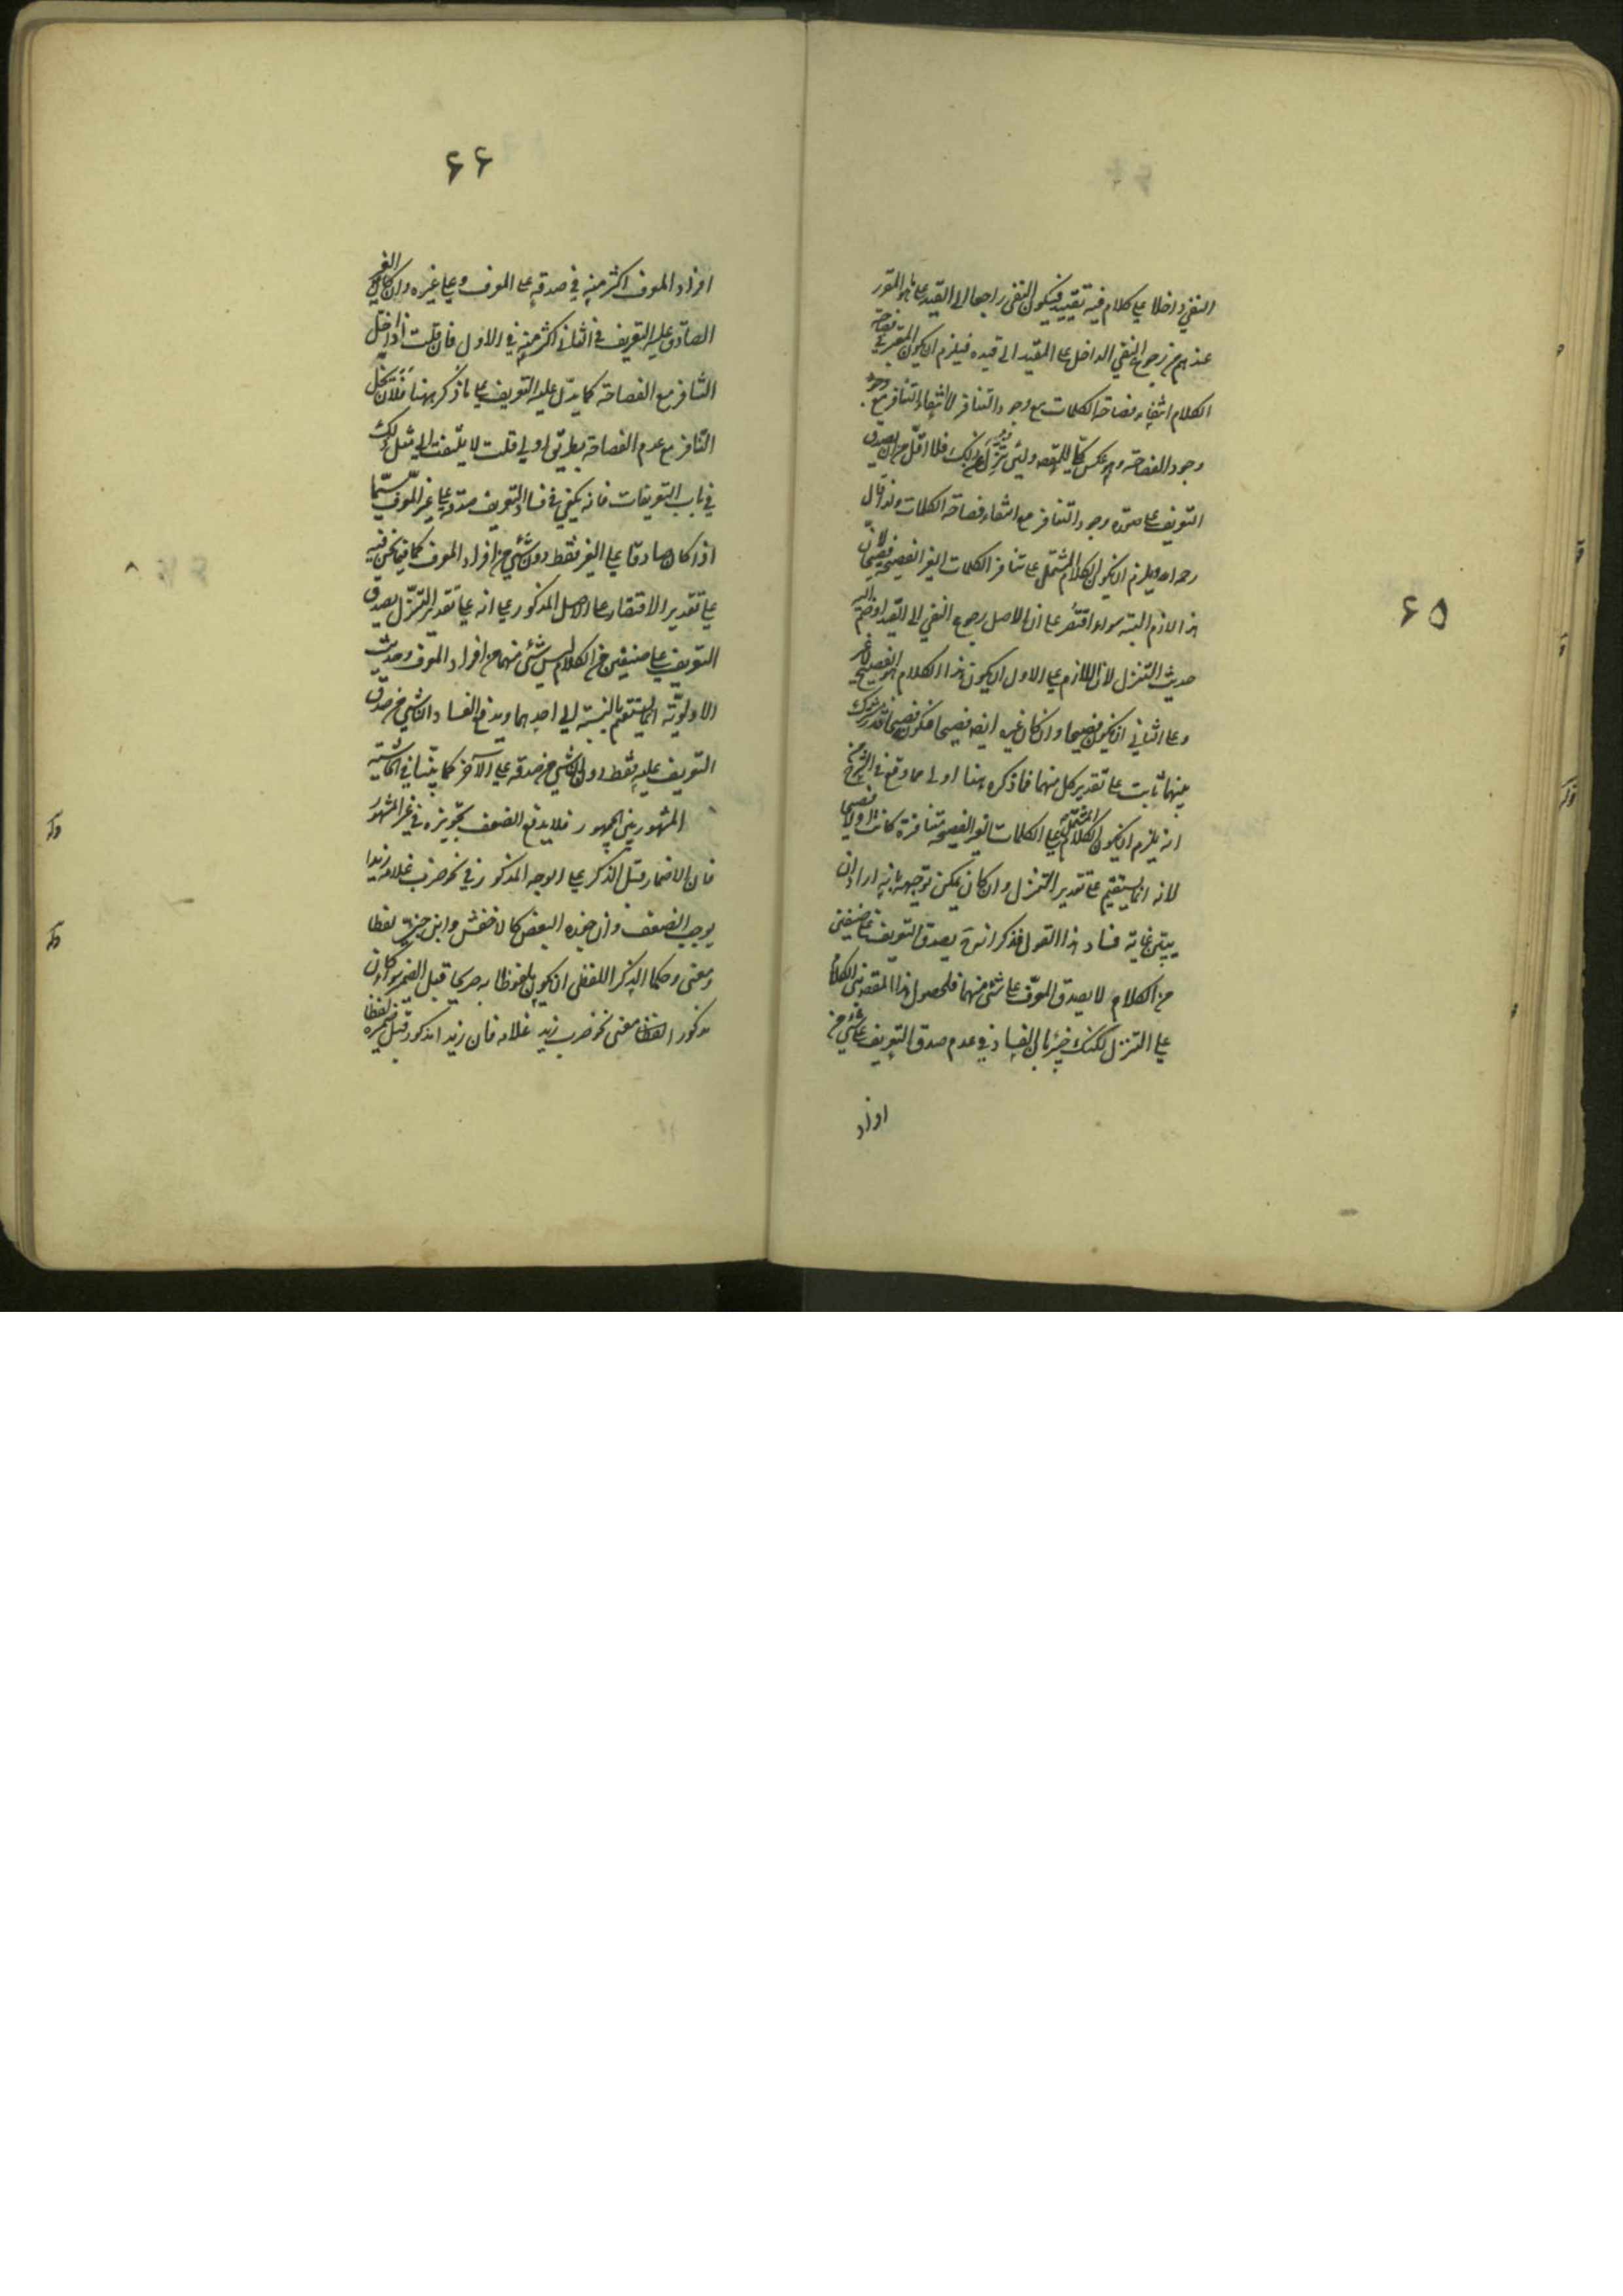 ٦٥
النفي داخلا على كلام فيه تقييد فيكون النفي راجعا الى القيد على ما هو المقرر
عندهم من رجوع النفي الداخل على المقيد الى قيده فيلزم ان يكون المعتبر في فصاحة
الكلام انتفاء فصاحة الكلمات مع وجود التنافر لا انتفاء التنافر مع وجود
وجود الفصاحة وهو عكس المقصد ولئن تنزل عن ذلك فلا اقل من ان يصدق
التعريف على صورة وجود التنافر مع انتفاء فصاحة الكلمات ولذا قال
رحمه الله ويلزم ان يكون الكلام المشتمل على تنافر الكلمات الغير الفصيحة فصيحا لان
هذا لازم البتة سواء اقتصر على ان الاصل رجوع النفي الى القيد او ضم اليه
حديث التنزل لان اللازم على الاول ان يكون هذا الكلام هو الفصيح لا غير
وعلى الثاني ان يكون فصيحا وان كان غيره ايضا فصيحا فكونه فصيحا قدر مشترك
بينهما ثابت على تقدير كل منهما فما ذكره هنا اولى مما وقع في الشرح من
انه يلزم ان يكون الكلام المشتمل على الكلمات الغير الفصيحة متنافرة كانت او لا فصيحا
لانه انما يستقيم على تقدير التنزل وان كان يمكن توجيهه بانه اراد ان
يبين غاية فساد هذا القول فذكر انه يصدق التعريف على صنفين
من الكلام لا يصدق المعرف على شئ منهما فلحصول هذا المقصد بنى الكلام
على التنزل لكنك خبير بان الفساد في عدم صدق التعريف على شئ من
افراد
٦٦
افراد المعرف اكثر منه في صدقه على المعرف وعلى غيره وان كان الغير
الصادق عليه التعريف في الثاني اكثر منه في الاول فان قلت اذا دخل
التنافر مع الفصاحة كما يدل عليه التعريف على ما ذكر ههنا فلان
التنافر مع عدم الفصاحة بطريق اولى قلت لا يلتفت الى مثل ذلك
في باب التعريفات فانه يكفي في فساد التعريف صدقه على غير المعرف سيما
اذا كان صادقا على الغير فقط دون شئ من افراد المعرف كما فيما نحن فيه
على تقدير الاقتصار على الاصل المذكور على انه على تقدير التنزل يصدق
التعريف على صنفين من الكلام ليس شئ منهما من افراد المعرف وحديث
الاولوية انما يستقيم بالنسبة الى احدهما ويندفع الفساد الناشي من صدق
التعريف عليه فقط دون الناشي من صدقه على الآخر كما بينا في الحاشية
المشهور بين الجمهور فلا يدفع الضعف تجويزه في غير المشهور
فان الاضمار قبل الذكر على الوجه المذكور في نحو ضرب غلامه زيدا
يوجب الضعف وان جوزه البعض كالاخفش وابن جني لفظا
ومعنى وحكما الذكر اللفظي ان يكون ملفوظا به صريحا قبل الضمير سواء كان
مذكورا لفظا معنى نحو ضرب زيد غلامه فان زيدا مذكور قبل ضميره لفظا